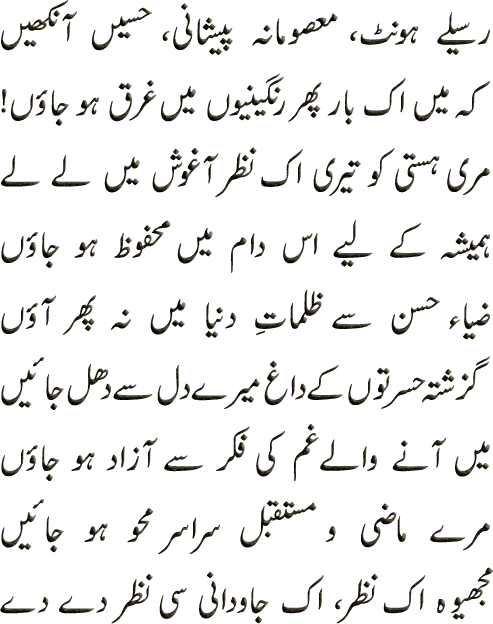 رسیلے ہونٹ، معصومانہ پیشانی، حسیں آنکھیں
کہ میں اک بار پھر رنگینیوں میں غرق ہو جاؤں!
مری ہستی کو تیری اک نظر آغوش میں لے لے
ہمیشہ کے لیے اس دام میں محفوظ ہو جاؤں
ضیاء حسن سے ظلماتِ دنیا میں نہ پھر آؤں
گزشتہ حسرتوں کے داغ میرے دل سے دھل جائیں
میں آنے والے غم کی فکر سے آزاد ہو جاؤں
مرے ماضی و مستقبل سراسر محو ہو جائیں
مجھے وہ اک نظر، اک جاودانی سی نظر دے دے